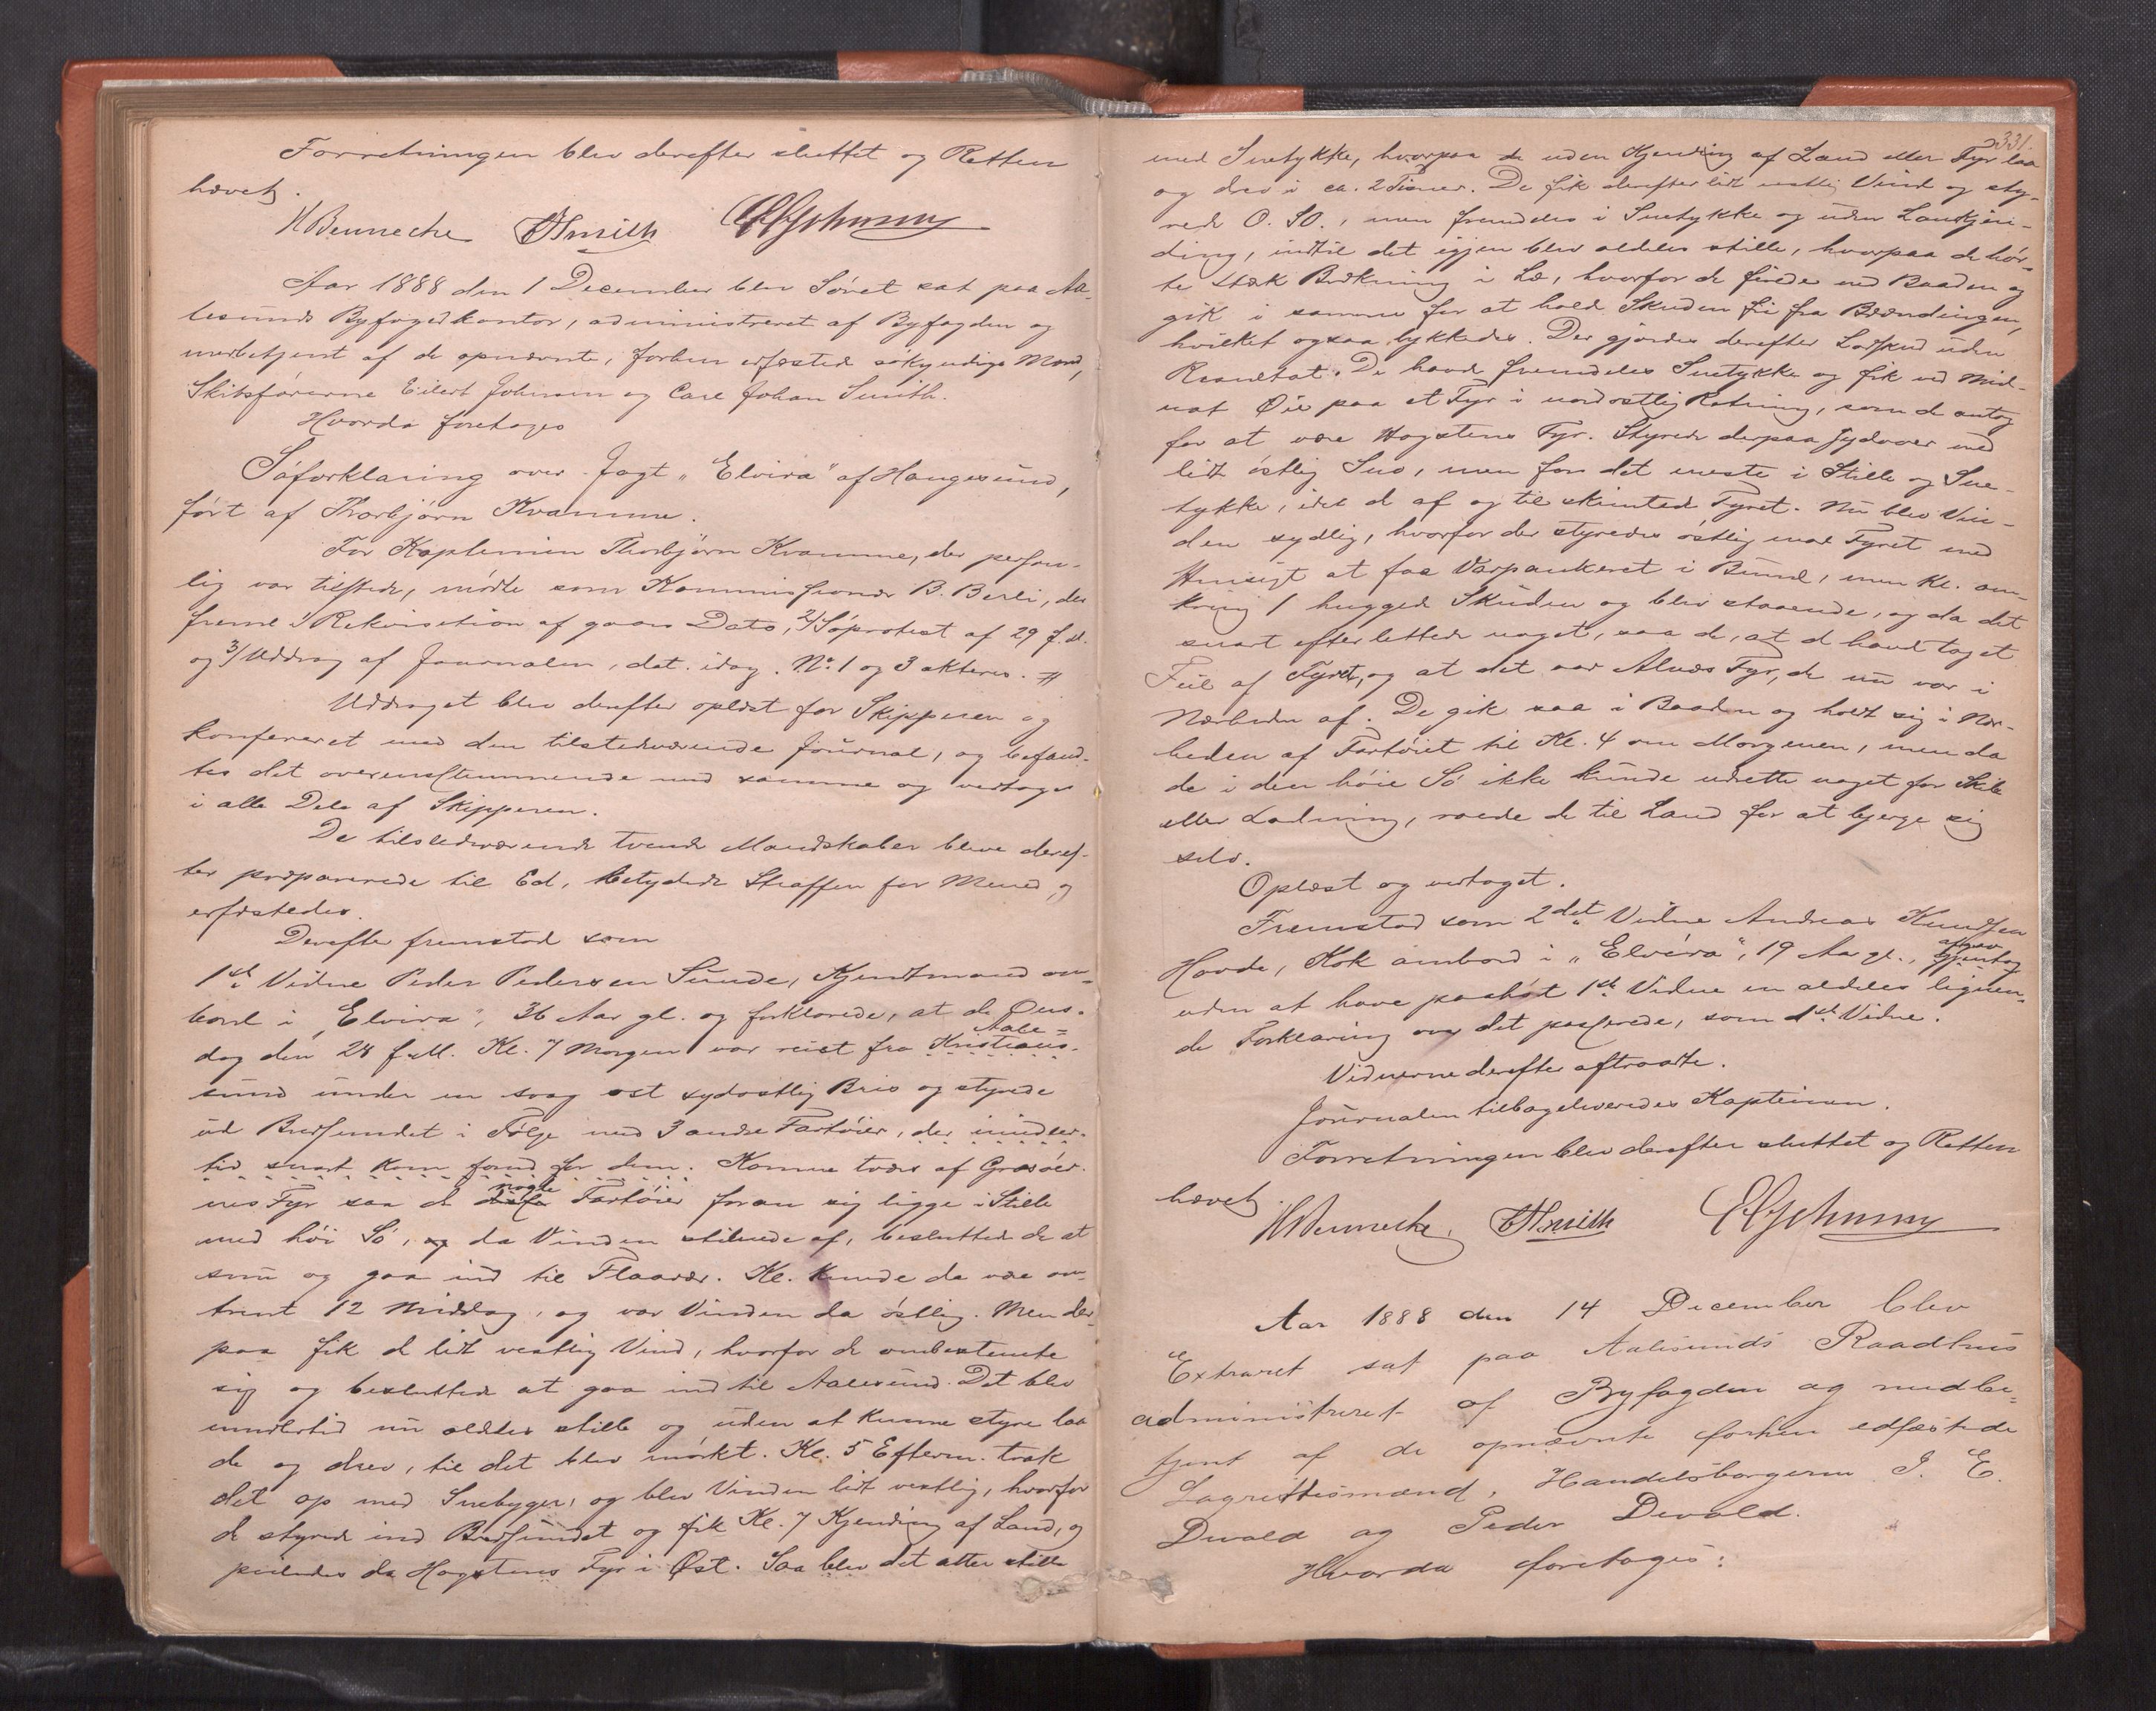 Forretningen blev derefter sluttet og Retten
hævet.
H Bennecke CJSmith E Johnsen
Aar 1888 den 1 December blev Søret sat paa Aa-
lesunds Byfogedkontor, administreret af Byfogden og
medbetjent af de opnævnte, forhen edfæstede søkyndige Mænd,
Skibsførerne Eilert Johnsen og Carl Johan Smith.
Hvorda foretoges
Søforklaring over Jagt „Elvira" af Haugesund,
ført af Thorbjørn Kvamme.
For Kapteinen Thorbjørn Kvamme, der person-
lig var tilstede, mødte som Kommissionær B. Berli, der
freml 1/ Rekvisition af gaars Dato, 2/ Søprotest af 29 f. M.
og 3/ Uddrag af Journalen, dat. idag. No. 1 og 3 akteres.
Uddraget blev derefter oplæst for Skipperen og
konfereret med den tilstedeværende Journal, og befand-
tes det overensstemmende med samme og vedtoges
i alle Dele af Skipperen.
De tilstedeværende tvende Mandskaber bleve deref-
ter præparerede til Ed, betydede Straffen for Mened og
edfæstedes.
Derefter fremstod som
1ste Vidne Peder Pedersen Sunde, Kjendtmand om-
bord i „Elvira", 36 Aar gl. og forklarede, at de Ons-
dag den 28 f.M. Kl. 7 Morgen var reist fra Kristians- Aale=
sund under en svag ost sydostlig Bris og styrede
ud Bredsundet i Følge med 3 andre Fartøier, der imidler-
tid snart kom forud for dem. Komne tvers af Grasøer-
nes Fyr saa de disse nogle Fartøier foran sig ligge i Stille
med høi Sø, og da Vinden stilnede af, besluttede de at
snu og gaa ind til Flaavær. Kl. kunde da være om-
trent 12 Middag, og var Vinden da østlig. Men der-
paa fik de lidt vestlig Vind, hvorfor de ombestemte
sig og besluttede at gaa ind til Aalesund. Det blev
imidlertid nu aldeles stille og uden at kunne styre laa
de og drev, til det blev mørkt. Kl. 5 Efterm. trak
det op med Snebyger, og blev Vinden lidt vestlig, hvorfor
de styrede ind Bredsundet og fik Kl. 7 Kjending af Land, og
peiledes da Hogstenes Fyr i Øst. Saa blev det atter stille
331.
med Snetykke, hvorpaa de uden Kjending af Land eller Fyr laa
og drev i ca. 2 Timer. De fik derefter lidt vestlig Vind og sty-
rede O. SO., men fremdeles i Snetykke og uden Landkjen-
ding, indtil det igjen blev aldeles stille, hvorpaa de hør-
te stærk Brækning i Læ, hvorfor de firede ned Baaden og
gik i samme for at holde Skuden fri fra Brændingen,
hvilket ogsaa lykkedes. Der gjordes derefter Lodskud uden
Resultat. De havde fremdeles Snetykke og fik ved Mid-
nat Øie paa et Fyr i nordostlig Retning, som de antog
for at være Hogstens Fyr. Styrede derpaa sydover med
lidt østlig Sno, men for det meste i Stille og Sne-
tykke, idet de af og til skimtede Fyret. Nu blev Vin-
den sydlig, hvorfor der styredes østlig mod Fyret med
Hensigt at faa Varpankeret i Bund, men Kl. om-
kring 1 huggede Skuden og blev staaende, og da det
snart efter lettede noget, saa de, at de havde taget
Feil af Fyret, og at det var Alnæs Fyr, de nu var i
Nærheden af. De gik saa i Baaden og holdt sig i Nær-
heden af Fartøiet til Kl. 4 om Morgenen, men da
de i den høie Sø ikke kunde udrette noget for Skib
eller Ladning, roede de til Land for at bjerge sig
selv.
Oplæst og vedtaget.
Fremstod som 2det Vidne Andreas Knudsen
Hovda, Kok ombord i „Elvira", 19 Aar gl., afgav
uden at have paahørt 1ste Vidne en aldeles lignen-
de Forklaring over det passerede, som 1ste Vidne.
Vidnerne derefter aftraadte.
Journalen tilbageleveredes Kapteinen.
Forretningen blev derefter sluttet og Retten
hævet.
H Bennecke. CJSmith E Johnsen
Aar 1888 den 14 December blev
Extraret sat paa Aalesunds Raadhus
administreret af Byfogden og medbe-
tjent af de opnævnte forhen edfæstede
Lagrettesmænd, Handelsborgerne J. E.
Devold og Peder Devold.
Hvorda foretoges: